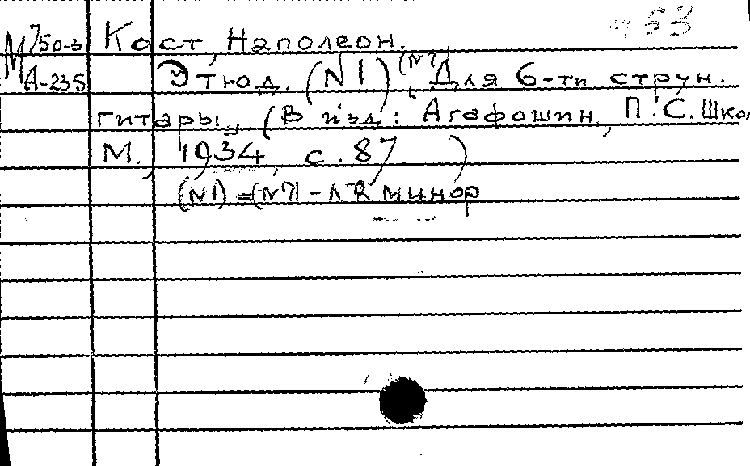 453
М 750-3 Кост, Наполеон.
А-235 Этюд. (N1) (N7) Для 6-ти струн.
гитары. (В изд: Агафошин, П.С. Шко
М., 1934, с. 87)
(N1) = (N7) - минор